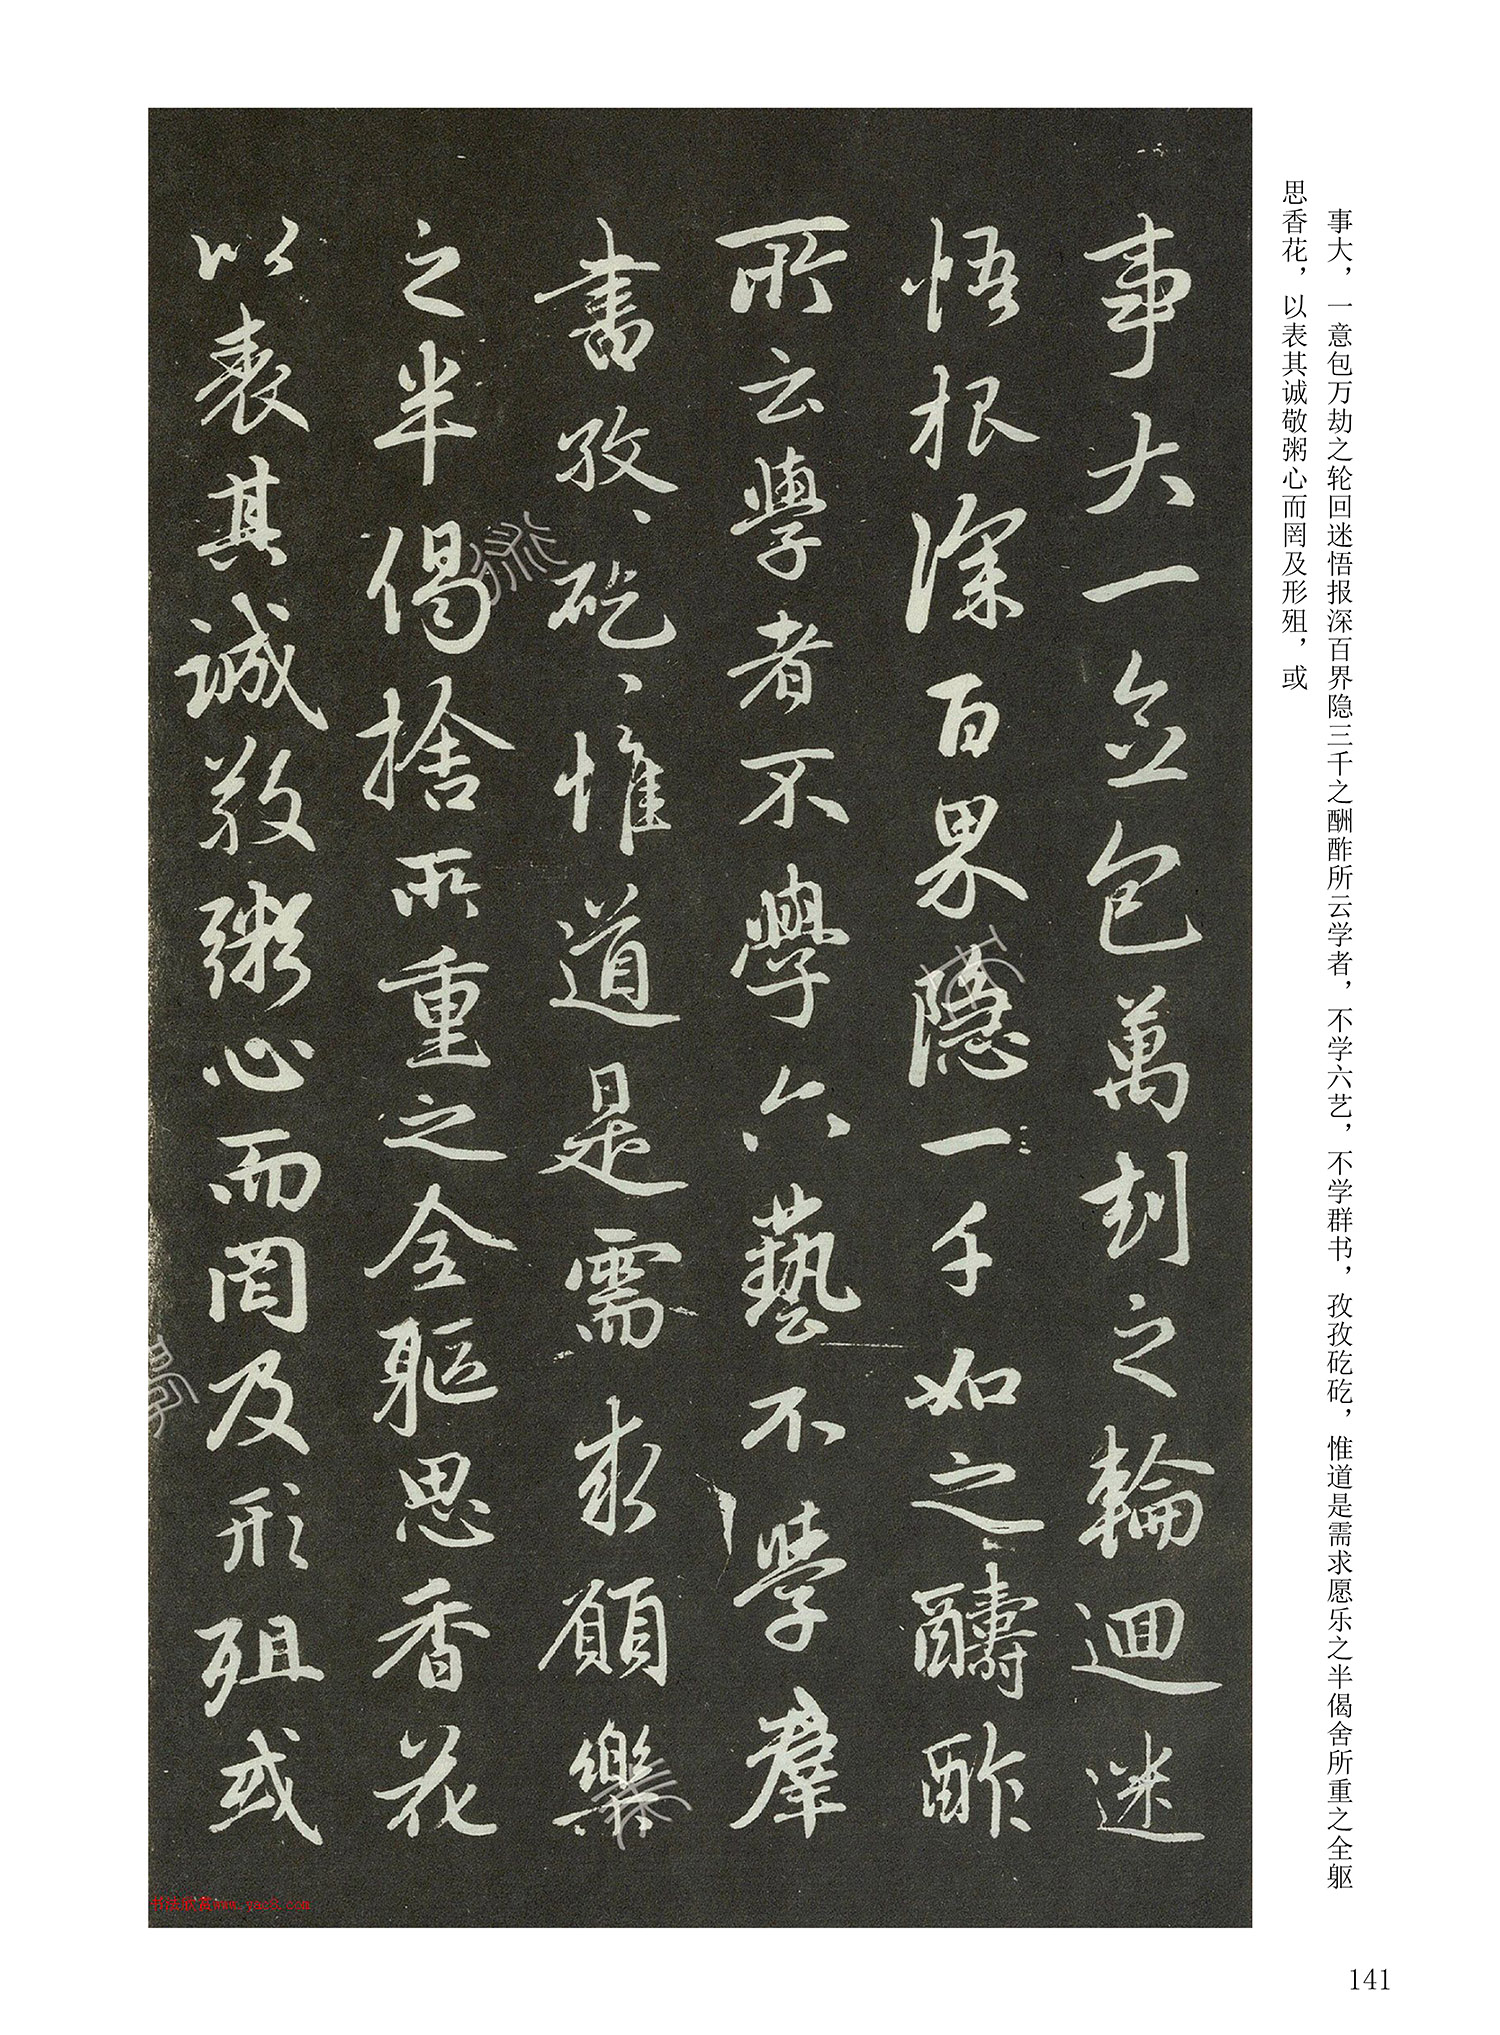 事大，一意包万劫之轮回迷悟报深百界隐三千之酬酢所云学者，不学六艺，不学群书，孜孜矻矻，惟道是需求愿乐之半偈舍所重之全躯
思香花，以表其诚敬粥心而罔及形殂，或
事大一念包萬刧之輪迴迷
悟根深百界隱一千如之醻酢
所云學者不學六藝不學羣
書孜、矻、惟道是需求願樂
之半偈捨所重之全軀思香花
以表其誠敬粥心而罔及形殂或
书法欣赏www.yac8.com
141